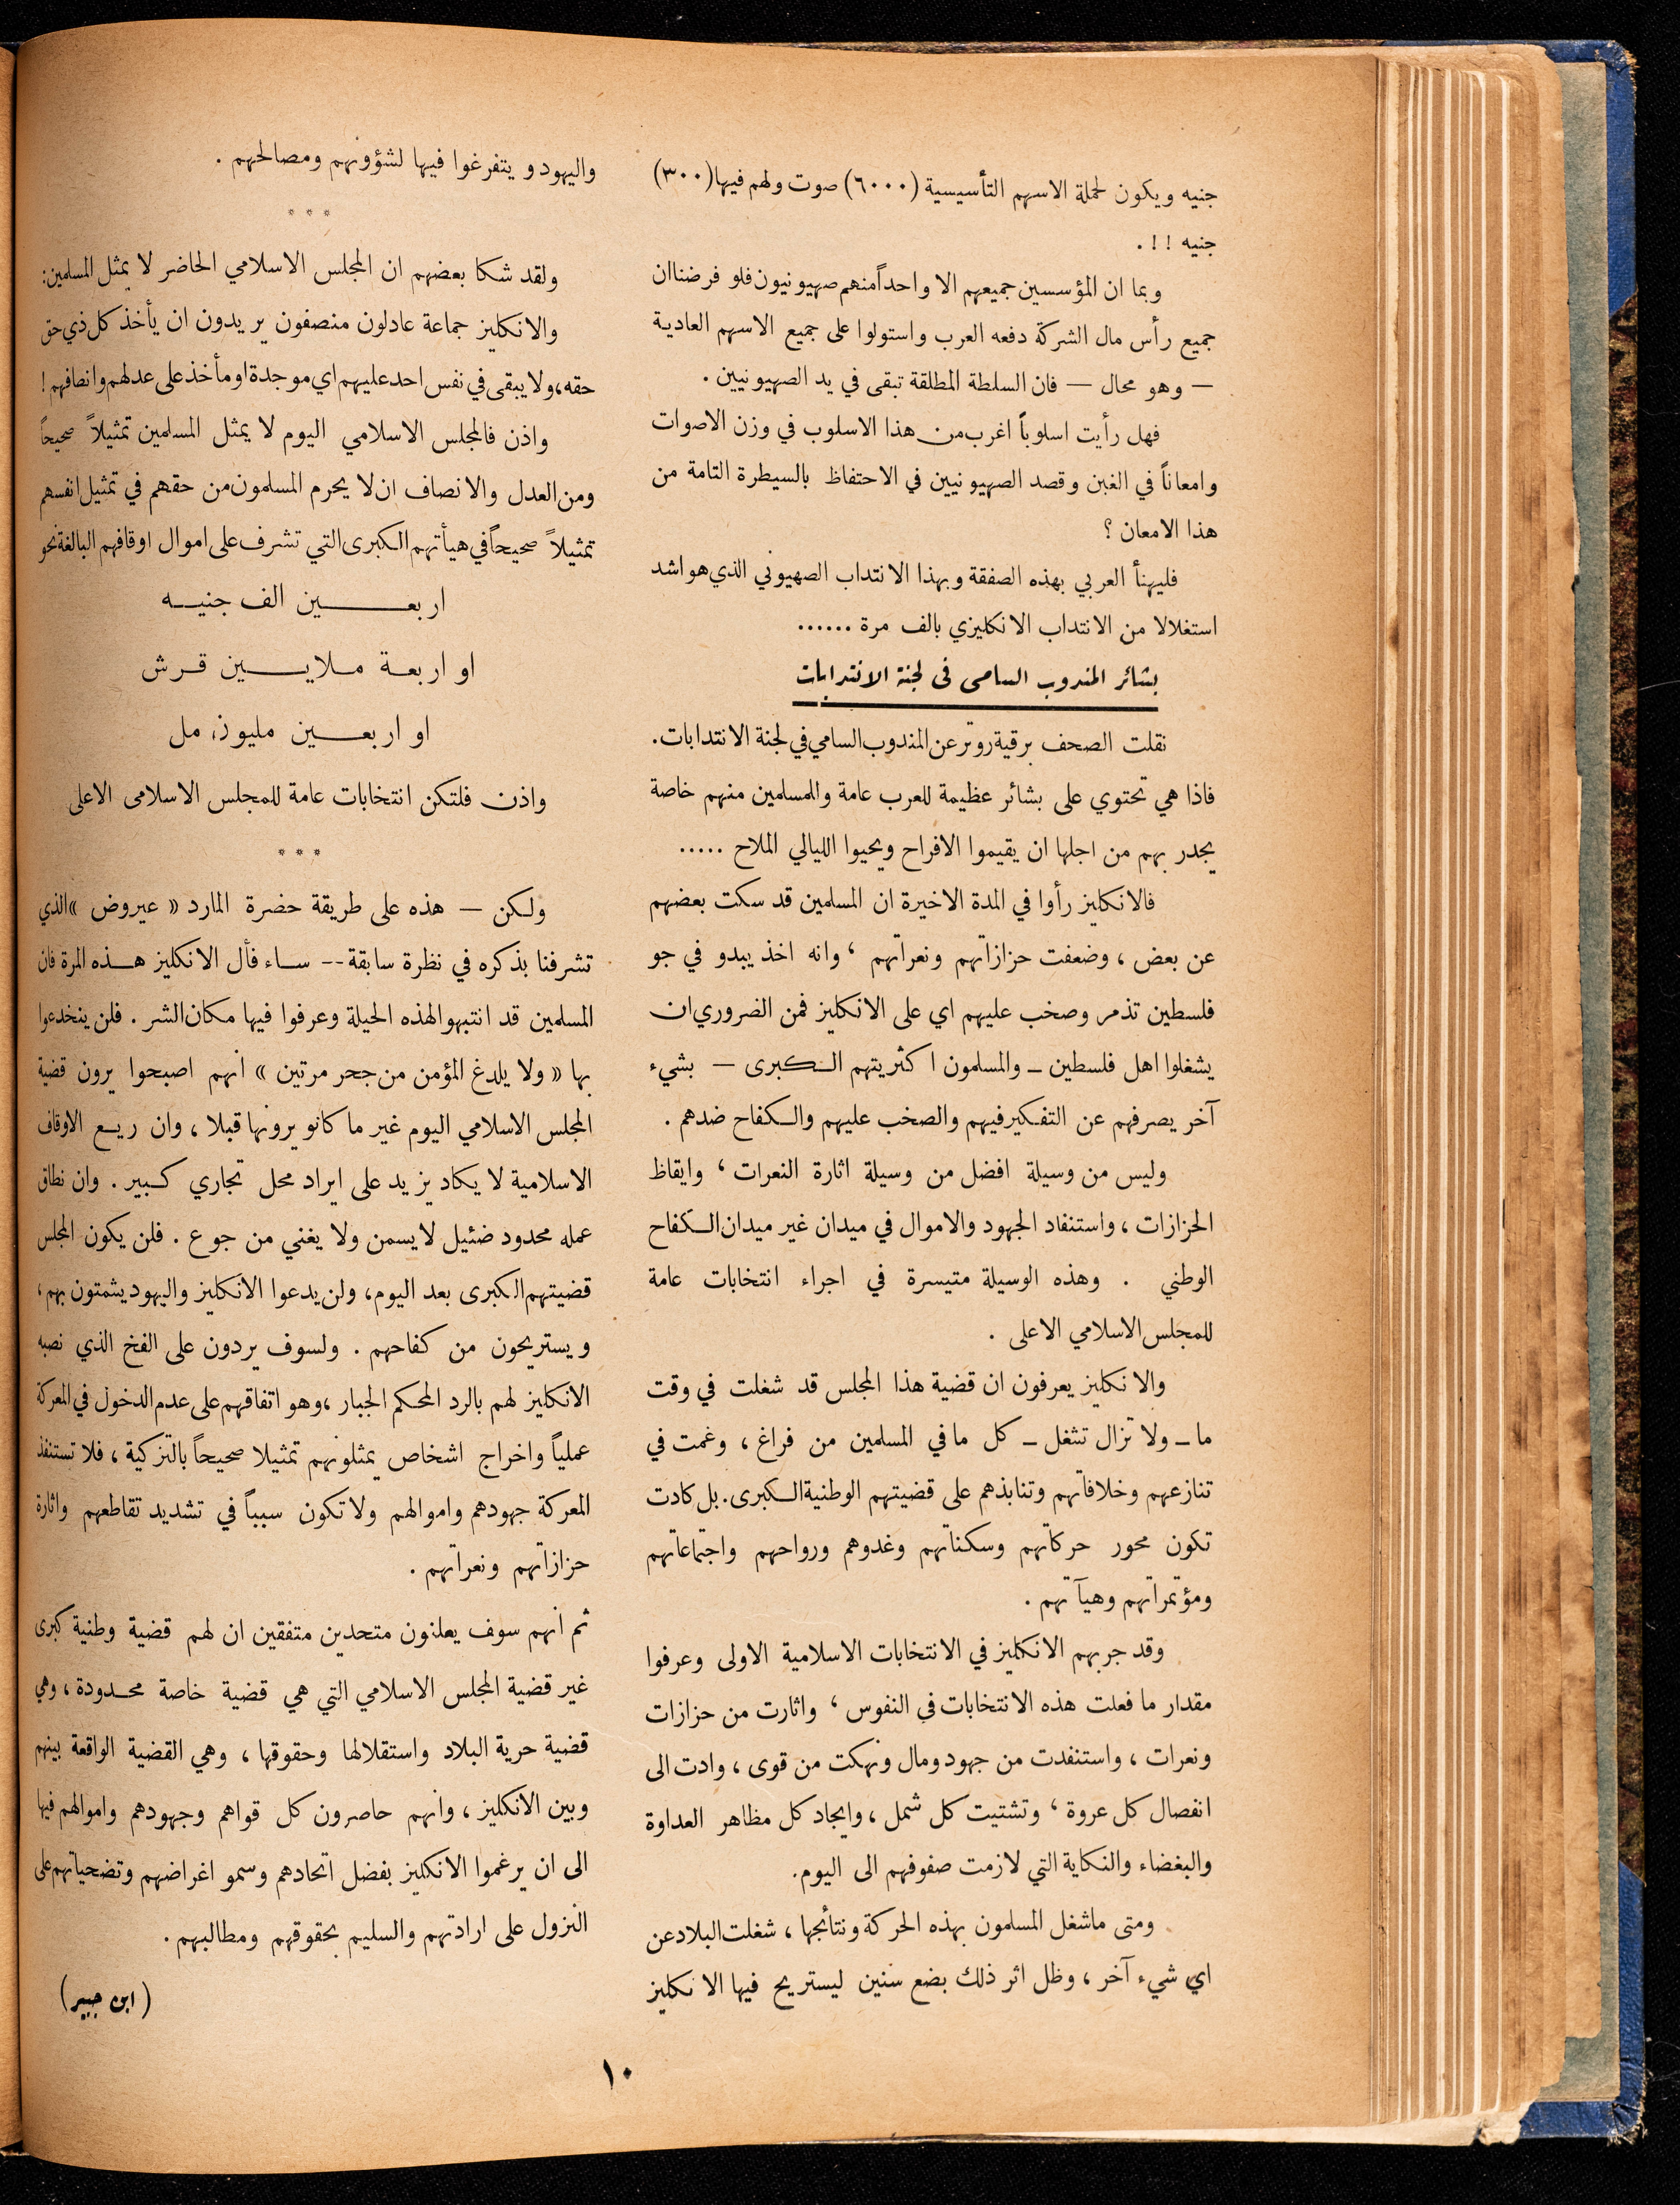 جنيه ويكون لحملة الاسهم التأسيسية (٦٠٠٠) صوت ولهم فيها (٣٠٠)
جنيه ! ! .
وبما ان المؤسسين جميعهم الا واحداً منهم صهيونيون فلو فرضنا ان
جميع رأس مال الشركة دفعه العرب واستولوا على جميع الاسهم العادية
— وهو محال — فان السلطة المطلقة تبقى في يد الصهيونيين .
فهل رأيت اسلوباً اغرب من هذا الاسلوب في وزن الاصوات
وامعاناً في الغبن وقصد الصهيونيين في الاحتفاظ بالسيطرة التامة من
هذا الامعان ؟
فليهنأ العربي بهذه الصفقة وبهذا الانتداب الصهيوني الذي هو اشد
استغلالا من الانتداب الانكليزي بالف مرة ......
بشائر المندوب السامى فى لجنة الانتدابات
نقلت الصحف برقية روتر عن المندوب السامي في لجنة الانتدابات .
فاذا هي تحتوي على بشائر عظيمة للعرب عامة والمسلمين منهم خاصة
يجدر بهم من اجلها ان يقيموا الافراح ويحيوا الليالي الملاح .....
فالانكليز رأوا في المدة الاخيرة ان المسلمين قد سكت بعضهم
عن بعض ، وضعفت حزازاتهم ونعراتهم ، وانه اخذ يبدو في جو
فلسطين تذمر وصخب عليهم اي على الانكليز فمن الضروري ان
يشغلوا اهل فلسطين — والمسلمون اكثريتهم الكبرى — بشيء
آخر يصرفهم عن التفكير فيهم والصخب عليهم والكفاح ضدهم .
وليس من وسيلة افضل من وسيلة اثارة النعرات ، وايقاظ
الحزازات ، واستنفاد الجهود والاموال في ميدان غير ميدان الكفاح
الوطني . وهذه الوسيلة متيسرة في اجراء انتخابات عامة
للمجلس الاسلامي الاعلى .
والانكليز يعرفون ان قضية هذا المجلس قد شغلت في وقت
ما — ولا تزال تشغل — كل ما في المسلمين من فراغ ، وغمت في
تنازعهم وخلافاتهم وتنابذهم على قضيتهم الوطنية الكبرى . بل كادت
تكون محور حركاتهم وسكناتهم وغدوهم ورواحهم واجتماعاتهم
ومؤتمراتهم وهيآتهم .
وقد جربهم الانكليز في الانتخابات الاسلامية الاولى وعرفوا
مقدار ما فعلت هذه الانتخابات في النفوس ، واثارت من حزازات
ونعرات ، واستنفدت من جهود ومال ونهكت من قوى ، وادت الى
انفصال كل عروة ، وتشتيت كل شمل ، وايجاد كل مظاهر العداوة
والبغضاء والنكاية التي لازمت صفوفهم الى اليوم .
ومتى ما شغل المسلمون بهذه الحركة ونتائجها ، شغلت البلاد عن
اي شيء آخر ، وظل اثر ذلك بضع سنين ليستريح فيها الانكليز
واليهود ويتفرغوا فيها لشؤونهم ومصالحهم .
* * *
ولقد شكا بعضهم ان المجلس الاسلامي الحاضر لا يمثل المسلمين :
والانكليز جماعة عادلون منصفون يريدون ان يأخذ كل ذي حق
حقه ، ولا يبقى في نفس احد عليهم اي موجدة او مأخذ على عدلهم وانصافهم !
واذن فالمجلس الاسلامي اليوم لا يمثل المسلمين تمثيلاً صحيحاً
ومن العدل والانصاف ان لا يحرم المسلمون من حقهم في تمثيل انفسهم
تمثيلاً صحيحاً في هيأتهم الكبرى التي تشرف على اموال اوقافهم البالغة نحو
اربعـــين الف جنيـه
او اربعـة مـلايـــين قـرش
او اربعـــين مليون مل
واذن فلتكن انتخابات عامة للمجلس الاسلامى الاعلى
* * *
ولكن — هذه على طريقة حضرة المارد « عيروض » الذي
تشرفنا بذكره في نظرة سابقة -- ساء فأل الانكليز هذه المرة فان
المسلمين قد انتبهوا لهذه الحيلة وعرفوا فيها مكان الشر . فلن ينخدعوا
بها « ولا يلدغ المؤمن من جحر مرتين » انهم اصبحوا يرون قضية
المجلس الاسلامي اليوم غير ما كانو يرونها قبلا ، وان ريع الاوقاف
الاسلامية لا يكاد يزيد على ايراد محل تجاري كبير . وان نطاق
عمله محدود ضئيل لا يسمن ولا يغني من جوع . فلن يكون المجلس
قضيتهم الكبرى بعد اليوم ، ولن يدعوا الانكليز واليهود يشمتون بهم ،
ويستريحون من كفاحهم . ولسوف يردون على الفخ الذي نصبه
الانكليز لهم بالرد المحكم الجبار ، وهو اتفاقهم على عدم الدخول في المعركة
عملياً واخراج اشخاص يمثلونهم تمثيلا صحيحاً بالتزكية ، فلا تستنفذ
المعركة جهودهم واموالهم ولا تكون سبباً في تشديد تقاطعهم واثارة
حزازاتهم ونعراتهم .
ثم انهم سوف يعلنون متحدين متفقين ان لهم قضية وطنية كبرى
غير قضية المجلس الاسلامي التي هي قضية خاصة محدودة ، وهي
قضية حرية البلاد واستقلالها وحقوقها ، وهي القضية الواقعة بينهم
وبين الانكليز ، وانهم حاصرون كل قواهم وجهودهم واموالهم فيها
الى ان يرغموا الانكليز بفضل اتحادهم وسمو اغراضهم وتضحياتهم على
النزول على ارادتهم والسليم بحقوقهم ومطالبهم .
( ابن جبير )
١٠